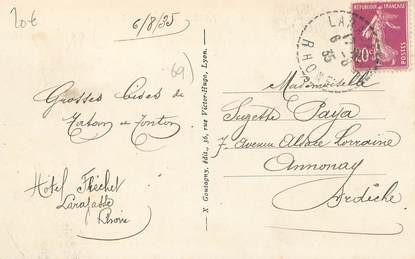 20€
6/8/35
69)
Grosses bises de
Tatan et Tonton
Hôtel Fléchet
Larajasse
Rhône
X Goutagny, édit., 36, rue Victor-Hugo, Lyon.
REPUBLIQUE FRANÇAISE
20c
POSTES
LAR
6 -8
35
RHO
Mademoiselle
Suzette Paya
7 Avenue Alsace Lorraine
Annonay
Ardèche